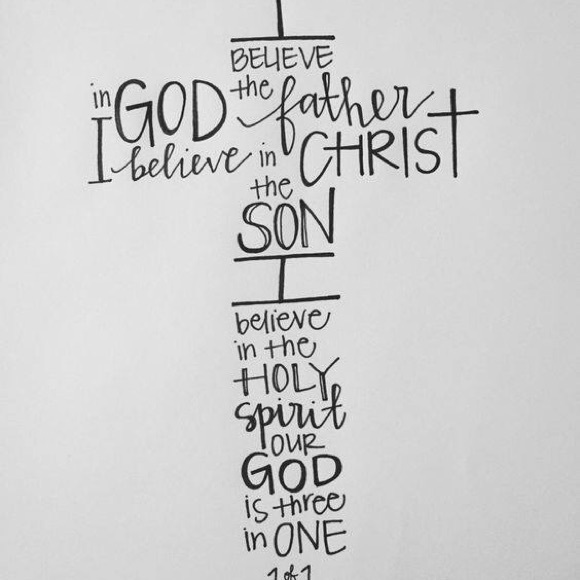 I
BELIEVE
in GOD the father
I believe in CHRIST
the
SON
I
believe
in the
HOLY
spirit
OUR
GOD
is three
in ONE
1 of 1